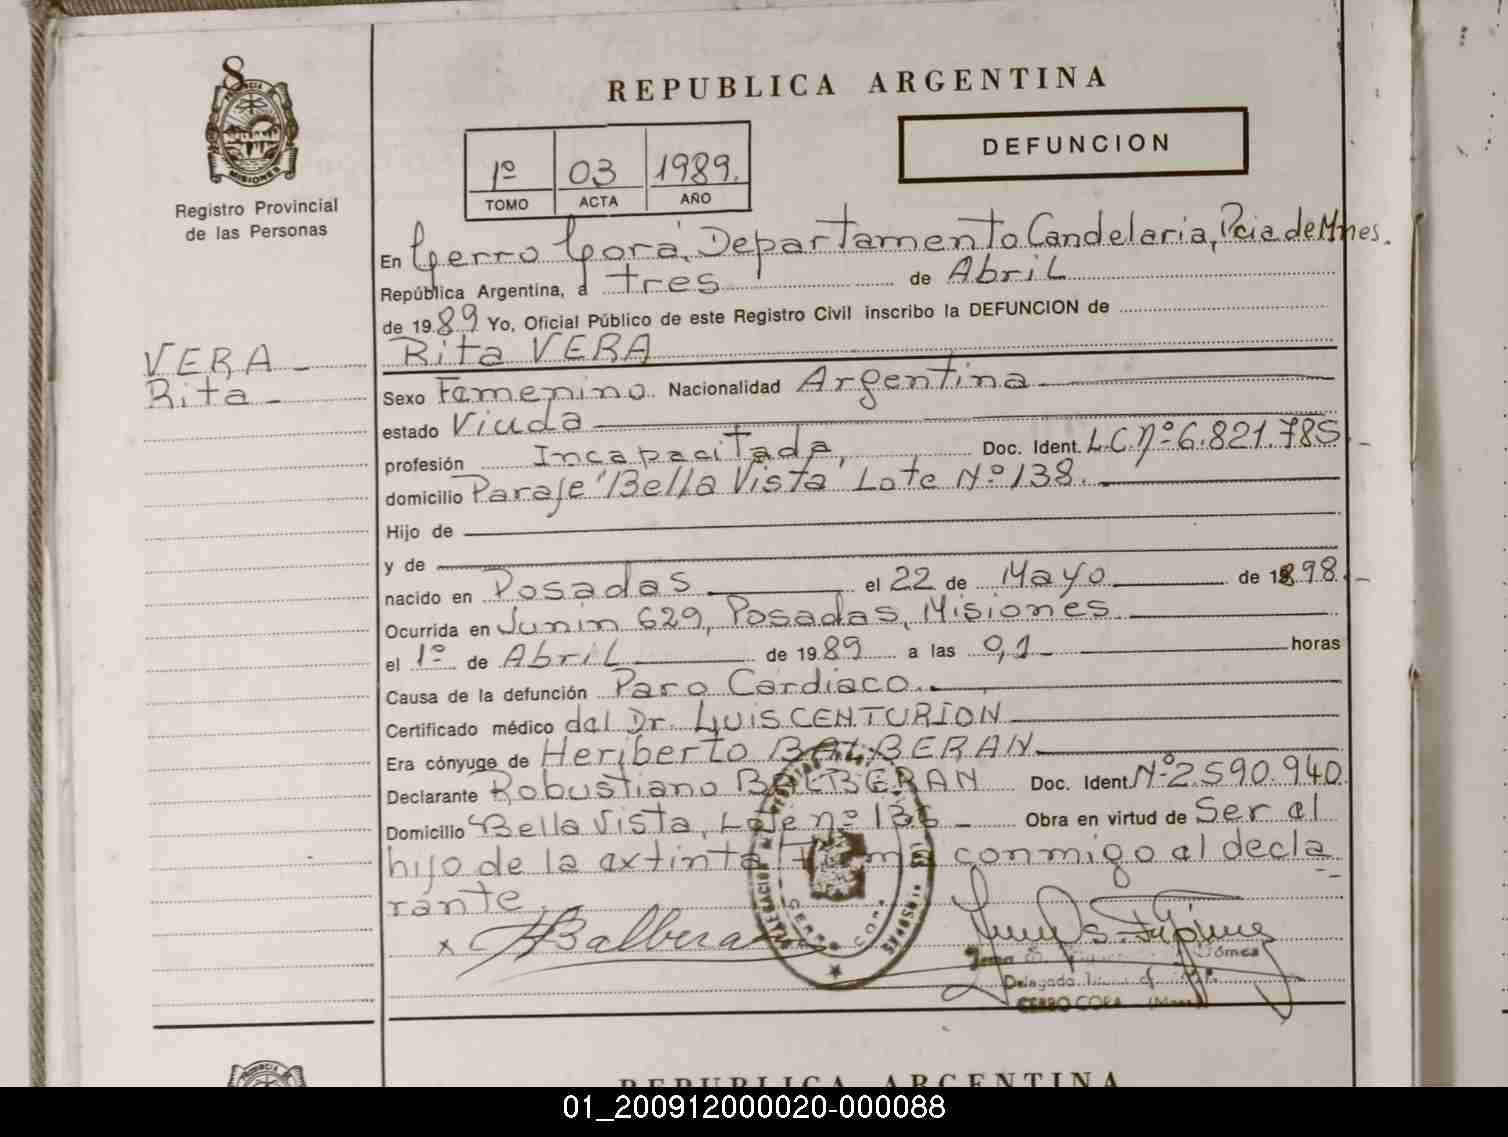 8
PROVINCIA
MISIONES
Registro Provincial
de las Personas
VERA
Rita
REPUBLICA ARGENTINA
1º 03 1989.
TOMO ACTA AÑO
DEFUNCION
En Cerro Corá, Departamento Candelaria, Pcia de Mnes.
República Argentina, a tres de Abril
de 1989 Yo, Oficial Público de este Registro Civil inscribo la DEFUNCION de
Rita VERA
Sexo Femenino Nacionalidad Argentina
estado Viuda
profesión Incapacitada, Doc. Ident. L.C. nº 6.821.785
domicilio Paraje "Bella Vista" Lote Nº 138.
Hijo de
y de
nacido en Posadas el 22 de Mayo de 1898
Ocurrida en Junín 629, Posadas, Misiones
el 1º de Abril de 1989 a las 0,1 horas
Causa de la defunción Paro Cardiaco.
Certificado médico del Dr. LUIS CENTURION
Era cónyuge de Heriberto BALBERAN
Declarante Robustiano BALBERAN Doc. Ident. Nº 2.590.940
Domicilio "Bella Vista, Lote nº 136 Obra en virtud de Ser el
hijo de la extinta Firma conmigo el decla
rante.
x Balberan
Gómes
Delegada
CERRO CORA
REPUBLICA ARGENTINA
01_200912000020-000088